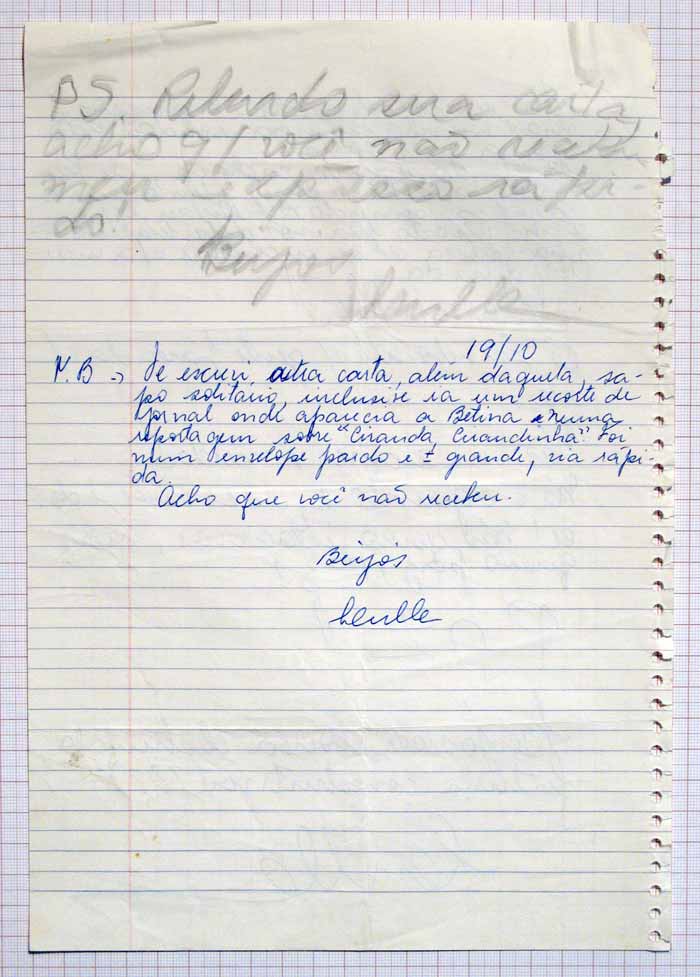 PS. Relendo sua carta,
acho q/ você não recebeu
meu expresso rápi-
do!
Beijos
19/10
N.B → Te escrevi outra carta, além daquela, sa-
po solitário, inclusive ia um recorte de
jornal onde aparecia a Betina e numa
reportagem sobre "Ciranda, Cirandinha". Foi
num envelope pardo e ± grande, via rápi-
da.
Acho que você não recebeu.
Beijos